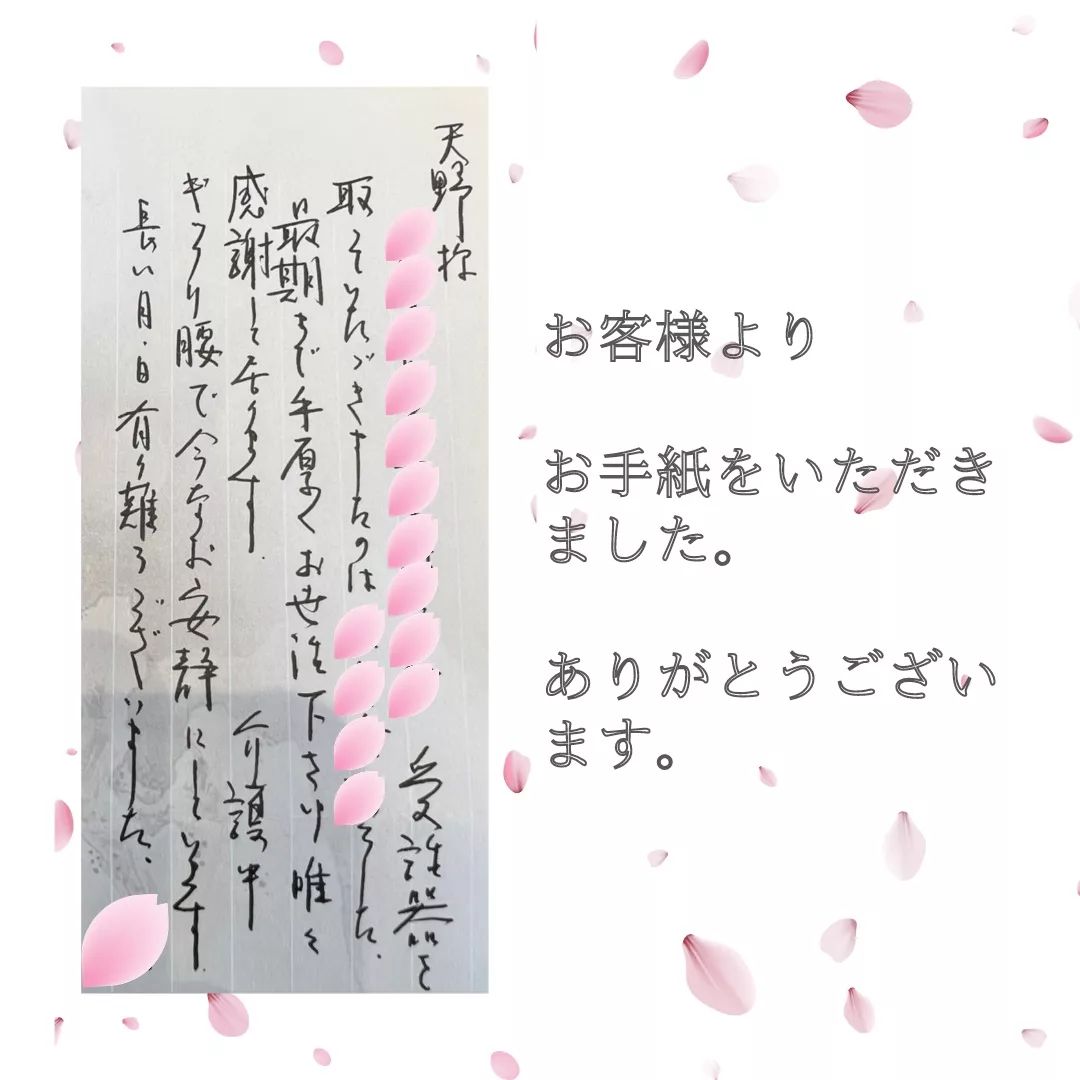 天野様
受話器を
取っていたゞきましたのは
でした。
最期まで手厚くお世話下さり唯々
感謝して居ります。
介護中
ギックリ腰で今なお安静にしています。
長い月・日有り難うございました。
お客様より
お手紙をいただき
ました。
ありがとうござい
ます。